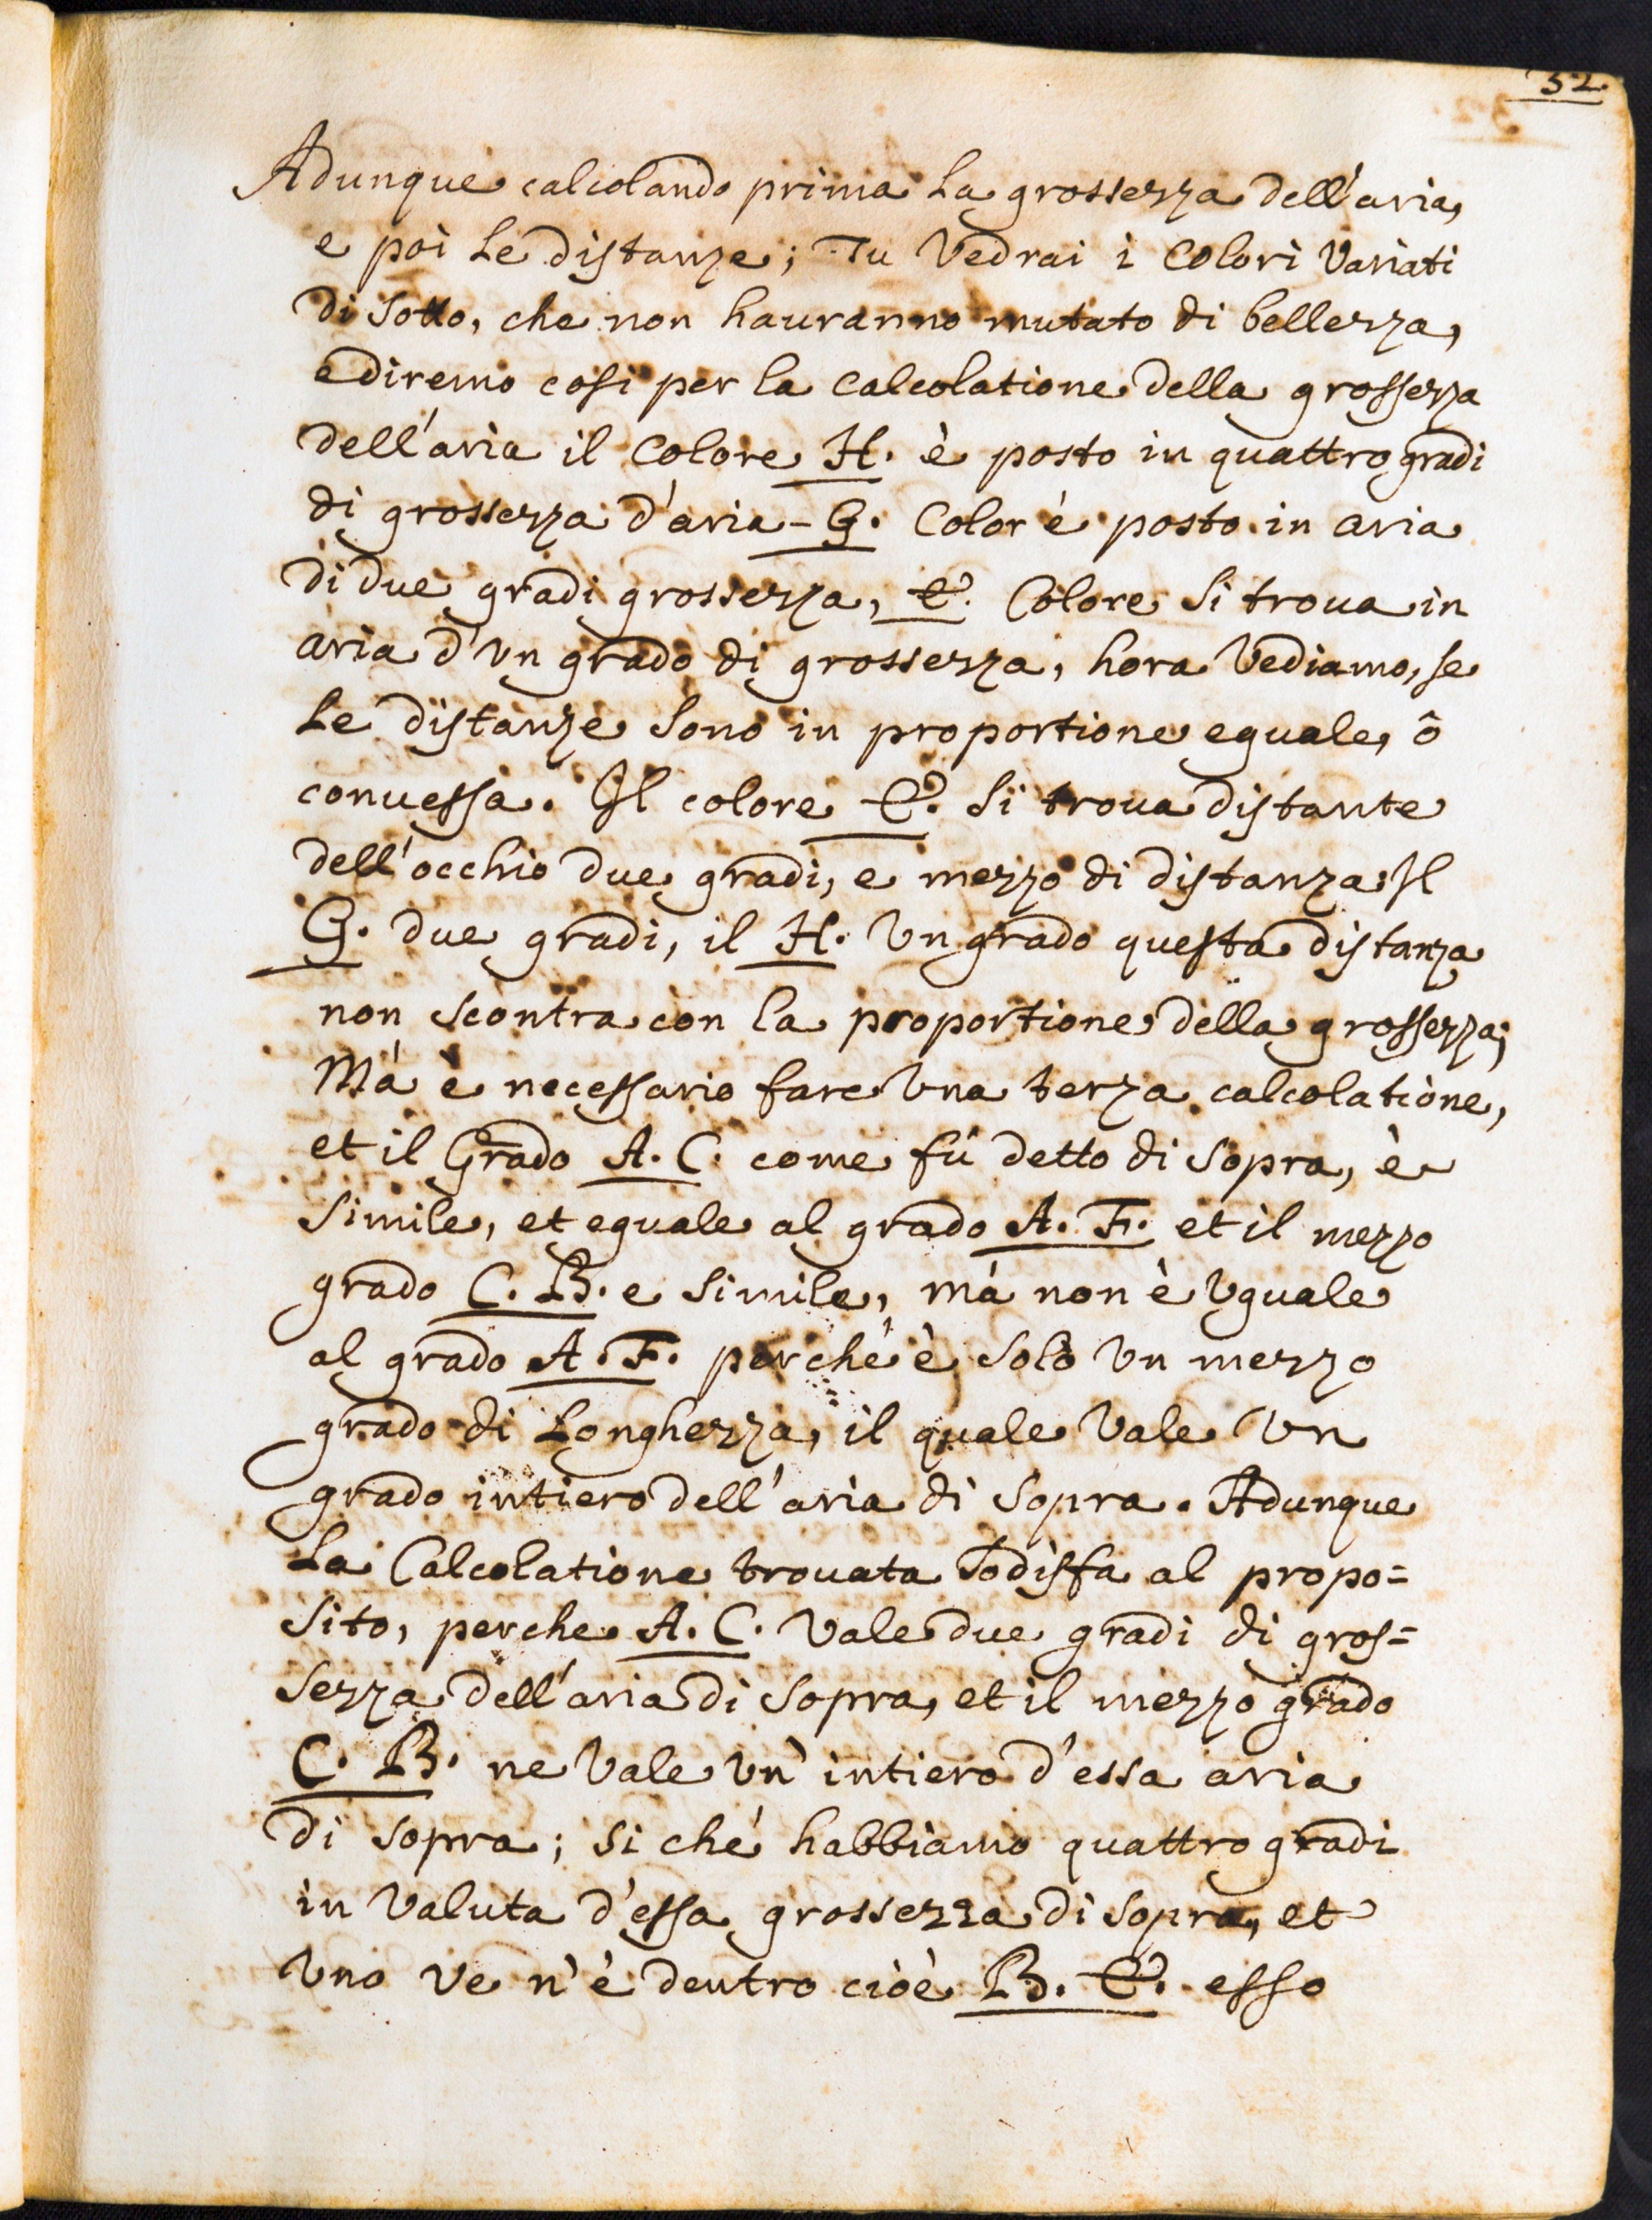 32.
Adunque calcolando prima La grossezza dell'aria,
e poi Le distanze; Tu Vedrai i Colori Variati
di Sotto, che non hauranno mutato di bellezza,
e diremo cosi per la calcolatione della grossezza
dell'aria il Colore H. è posto in quattro gradi
di grossezza d'aria - G. Color è posto in aria
di due gradi grossezza, E. Colore Si troua in
aria d'Vn grado di grossezza, hora Vediamo, se
Le distanze Sono in proportione eguale, ô
conuessa. Il colore E. Si troua distante
dell'occhio due gradi, e mezzo di distanza: Il
G. due gradi, il H. Vn grado questa distanza
non scontra con la proportione della grossezza;
Má è necessario fare Vna terza calcolatione,
et il Grado A. C. come fú detto di Sopra, è
Simile, et eguale al grado A. F. et il mezzo
grado C. B. e Simile, má non è Vguale
al grado A. F. perché è Solo Vn mezzo
grado di Longhezza, il quale Vale Vn
grado intiero dell'aria di Sopra. Adunque
La Calcolatione trouata Sodisfa al propo=
Sito, perche A. C. Vale due gradi di gros=
Sezza dell'aria di Sopra, et il mezzo grado
C. B. ne Vale Vn intiero d'essa aria
di Sopra; Si ché habbiamo quattro gradi
in Valuta d'essa grossezza di Sopra, et
Vno ve n'è dentro cioè B. E. esso